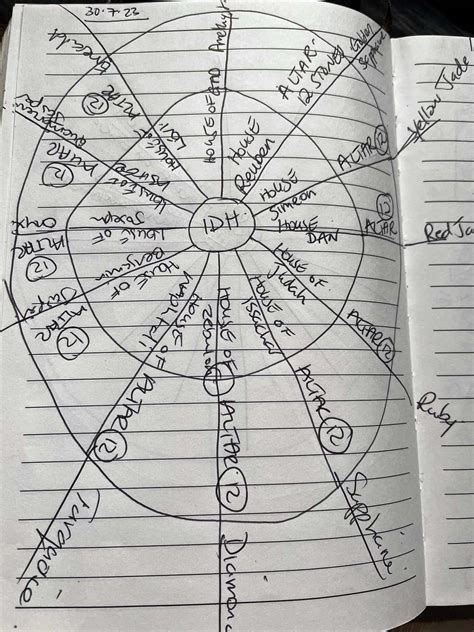 30.7.23
Amethyst
HOUSE OF GAD
ALTAR
12 STONES
HOUSE
Reuben
ALTAR 12
Yellow Jade
HOUSE
Simeon
12
ALTAR
HOUSE
DAN
Red Ja
HOUSE OF
Judah
ALTAR 12
Ruby
HOUSE OF
Issachar
ALTAR 12
Sapphire
HOUSE OF
ALTAR 12
Diamon
HOUSE OF
ALTAR 12
Turquoise
HOUSE OF
Benjamin
ALTAR 12
Jasper
HOUSE OF
Joseph
ALTAR 12
Onyx
HOUSE OF
ALTAR 12
HOUSE OF
Levi
ALTAR 12
Emerald